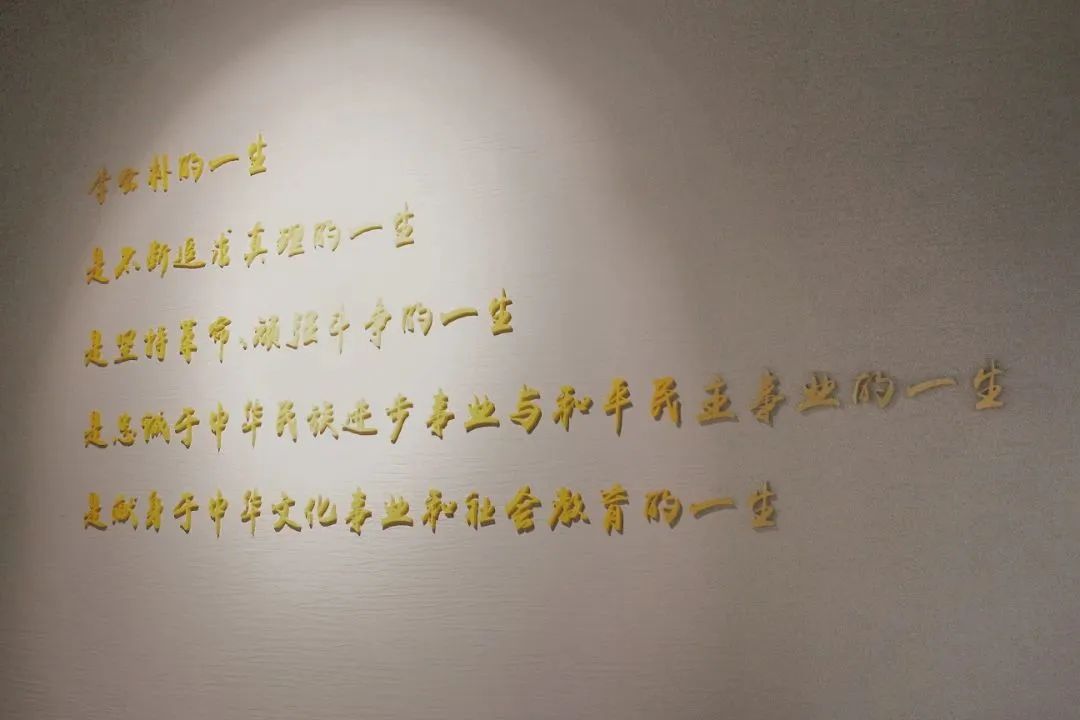 李公朴的一生
是不断追求真理的一生
是坚持革命、顽强斗争的一生
是忠诚于中华民族进步事业与和平民主事业的一生
是献身于中华文化事业和社会教育的一生